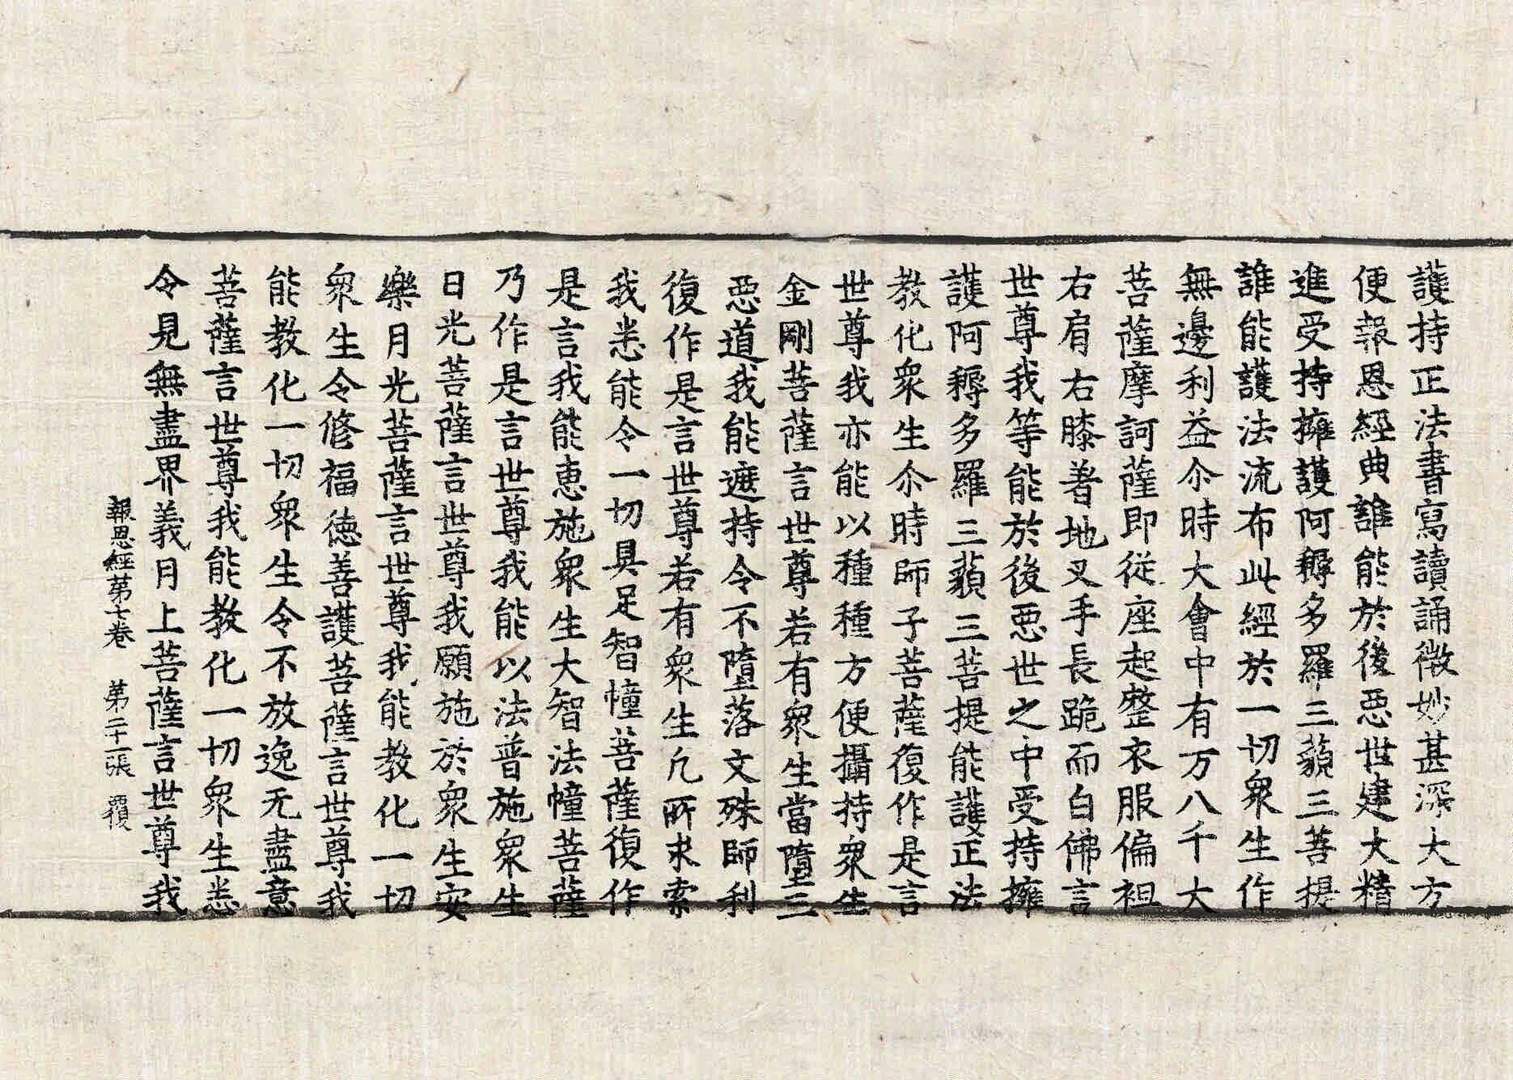 護持正法書寫讀誦微妙甚深大方
便報恩經典誰能於後惡世建大精
進受持擁護阿耨多羅三藐三菩提
誰能護法流布此經於一切衆生作
無邊利益尒時大會中有万八千大
菩薩摩訶薩即從座起整衣服偏袒
右肩右膝著地叉手長跪而白佛言
世尊我等能於後惡世之中受持擁
護阿耨多羅三藐三菩提能護正法
教化衆生尒時師子菩薩復作是言
世尊我亦能以種種方便攝持衆生
金剛菩薩言世尊若有衆生當墮三
惡道我能遮持令不墮落文殊師利
復作是言世尊若有衆生凢所求索
我悉能令一切具足智幢菩薩復作
是言我能恵施衆生大智法幢菩薩
乃作是言世尊我能以法普施衆生
日光菩薩言世尊我願施於衆生安
樂月光菩薩言世尊我能教化一切
衆生令修福徳善護菩薩言世尊我
能教化一切衆生令不放逸无盡意
菩薩言世尊我能教化一切衆生悉
令見無盡界義月上菩薩言世尊我
報恩經苐七卷 第二十一張 覆